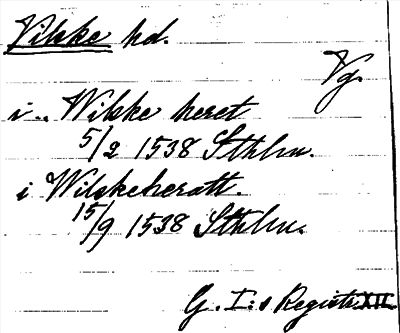 Vilske hd.
Vg.
i .. Wilske heret
5/2 1538 Sthlm.
i Wilskeheratt.
15/9 1538 Sthlm.
G. I:s Registr. XII